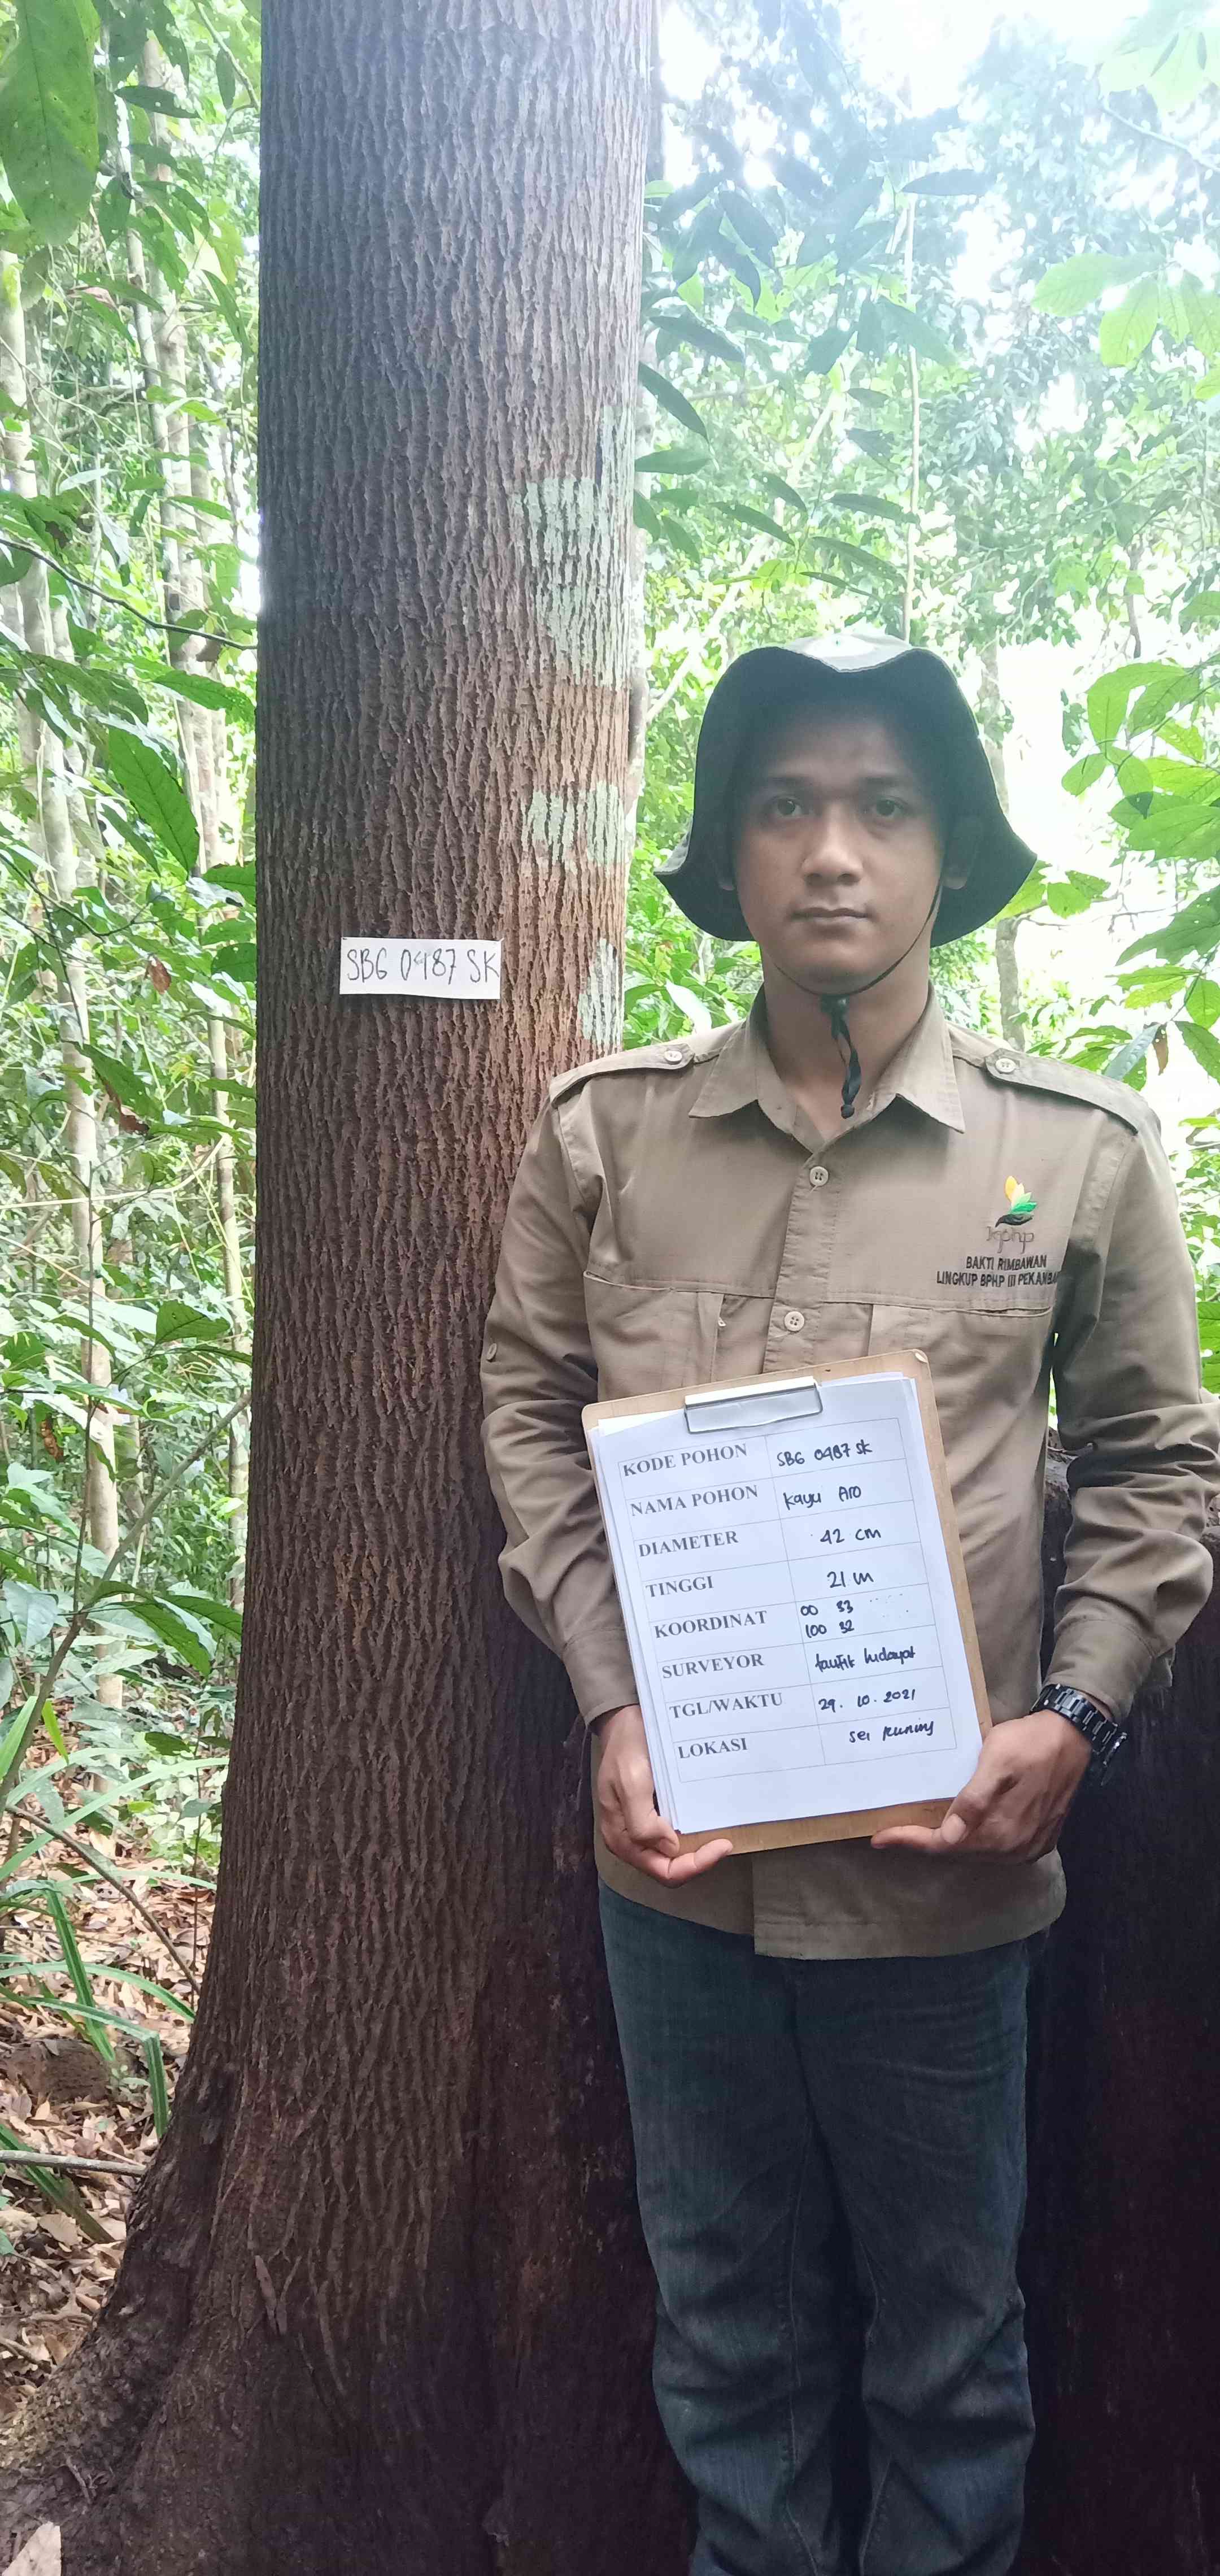 SBG 0487 SK
kphp
BAKTI RIMBAWAN
LINGKUP BPHP III PEKANBA
KODE POHON SBG 0487 SK
NAMA POHON Kayu Aro
DIAMETER 42 cm
TINGGI 21 m
KOORDINAT 00 33
100 32
SURVEYOR taufik hidayat
TGL/WAKTU 29. 10. 2021
LOKASI sei kuning